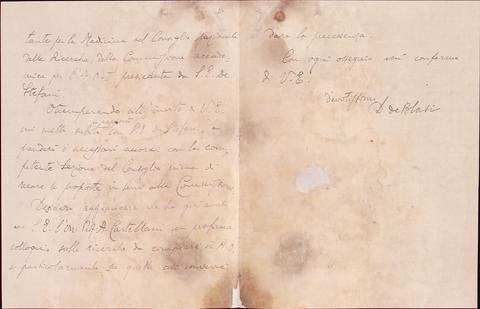 tante per la Medicina nel Consiglio nazionale
delle Ricerche, della Commissione accade-
mica per l'A.O.I. presieduta da S. E. De
Stefani.
Ottemperando all'invito di V. E.
mi metto subito in rapporti con S. E. De Stefani, e
prenderò i necessari accordi con la com-
petente Sezione del Consiglio prima di
recare le proposte in seno alla
Desidero aggiungere che ho già avuto
con S. E. l'On. Castellani un proficuo
colloquio sulle ricerche da compiersi in A.O.
e particolarmente su quelle cui converrà
dare la precedenza.
Con ogni ossequio mi confermo
di V. E.
devotissimo
D. de Blasi